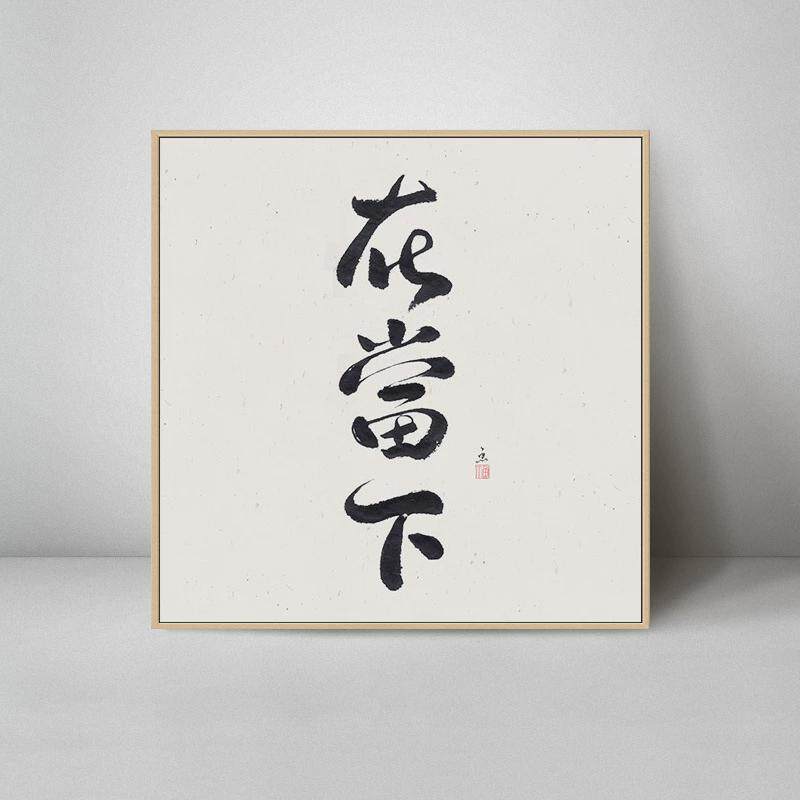 在當下